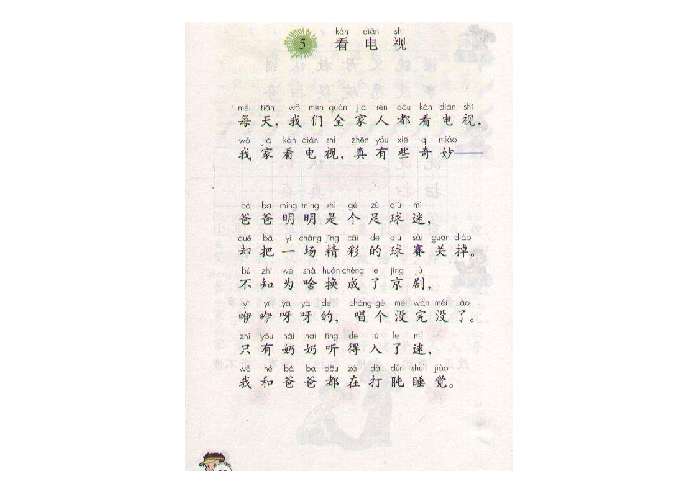 kàn diàn shì
5 看电视
měi tiān wǒ men quán jiā rén dōu kàn diàn shì
每天，我们全家人都看电视，
wǒ jiā kàn diàn shì zhēn yǒu xiē qí miào
我家看电视，真有些奇妙——
bà ba míng míng shì gè zú qiú mí
爸爸明明是个足球迷，
què bǎ yì chǎng jīng cǎi de qiú sài guān diào
却把一场精彩的球赛关掉。
bù zhī wèi shà huàn chéng le jīng jù
不知为啥换成了京剧，
yī yī yā yā de chàng gè méi wán méi liǎo
咿咿呀呀的，唱个没完没了。
zhǐ yǒu nǎi nai tīng de rù le mí
只有奶奶听得入了迷，
wǒ hé bà ba dōu zài dǎ dǔn shuì jiào
我和爸爸都在打盹睡觉。